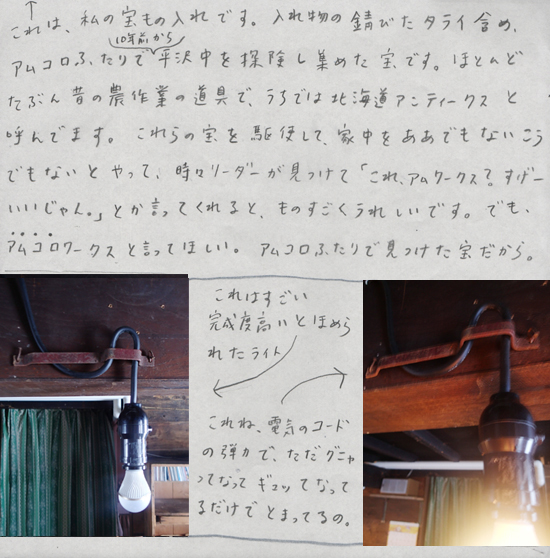 これは、私の宝もの入れです。入れ物の錆びたタライ含め、
10年前から
アムコロふたりで平沢中を探険し集めた宝です。ほとんど
たぶん昔の農作業の道具で、うちでは北海道アンティークスと
呼んでます。これらの宝を駆使して、家中をああでもないこう
でもないとやって、時々リーダーが見つけて「これ、アムワークス?すげー
いいじゃん。」とか言ってくれると、ものすごくうれしいです。でも、
アムコロワークスと言ってほしい。アムコロふたりで見つけた宝だから。
これはすごい
完成度高いとほめら
れたライト
これね、電気のコード
の弾力で、ただグニャ
ってなってギュッてなって
るだけでとまってるの。